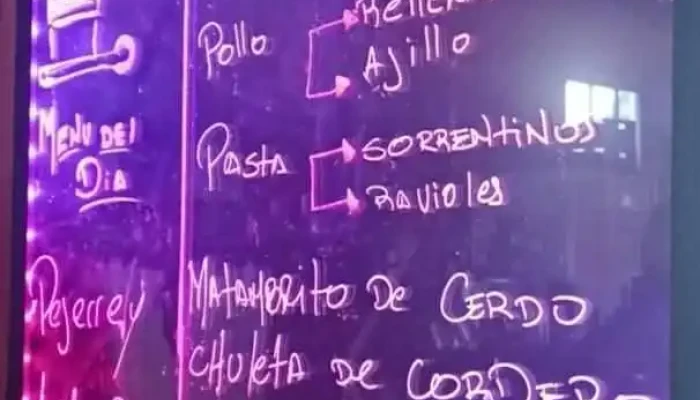 Pollo
Ajillo
MENU DEL
DIA
PASTA
SORRENTINOS
RAVIOLES
Pejerrey
MATAMBRITO DE CERDO
CHULETA DE CORDERO